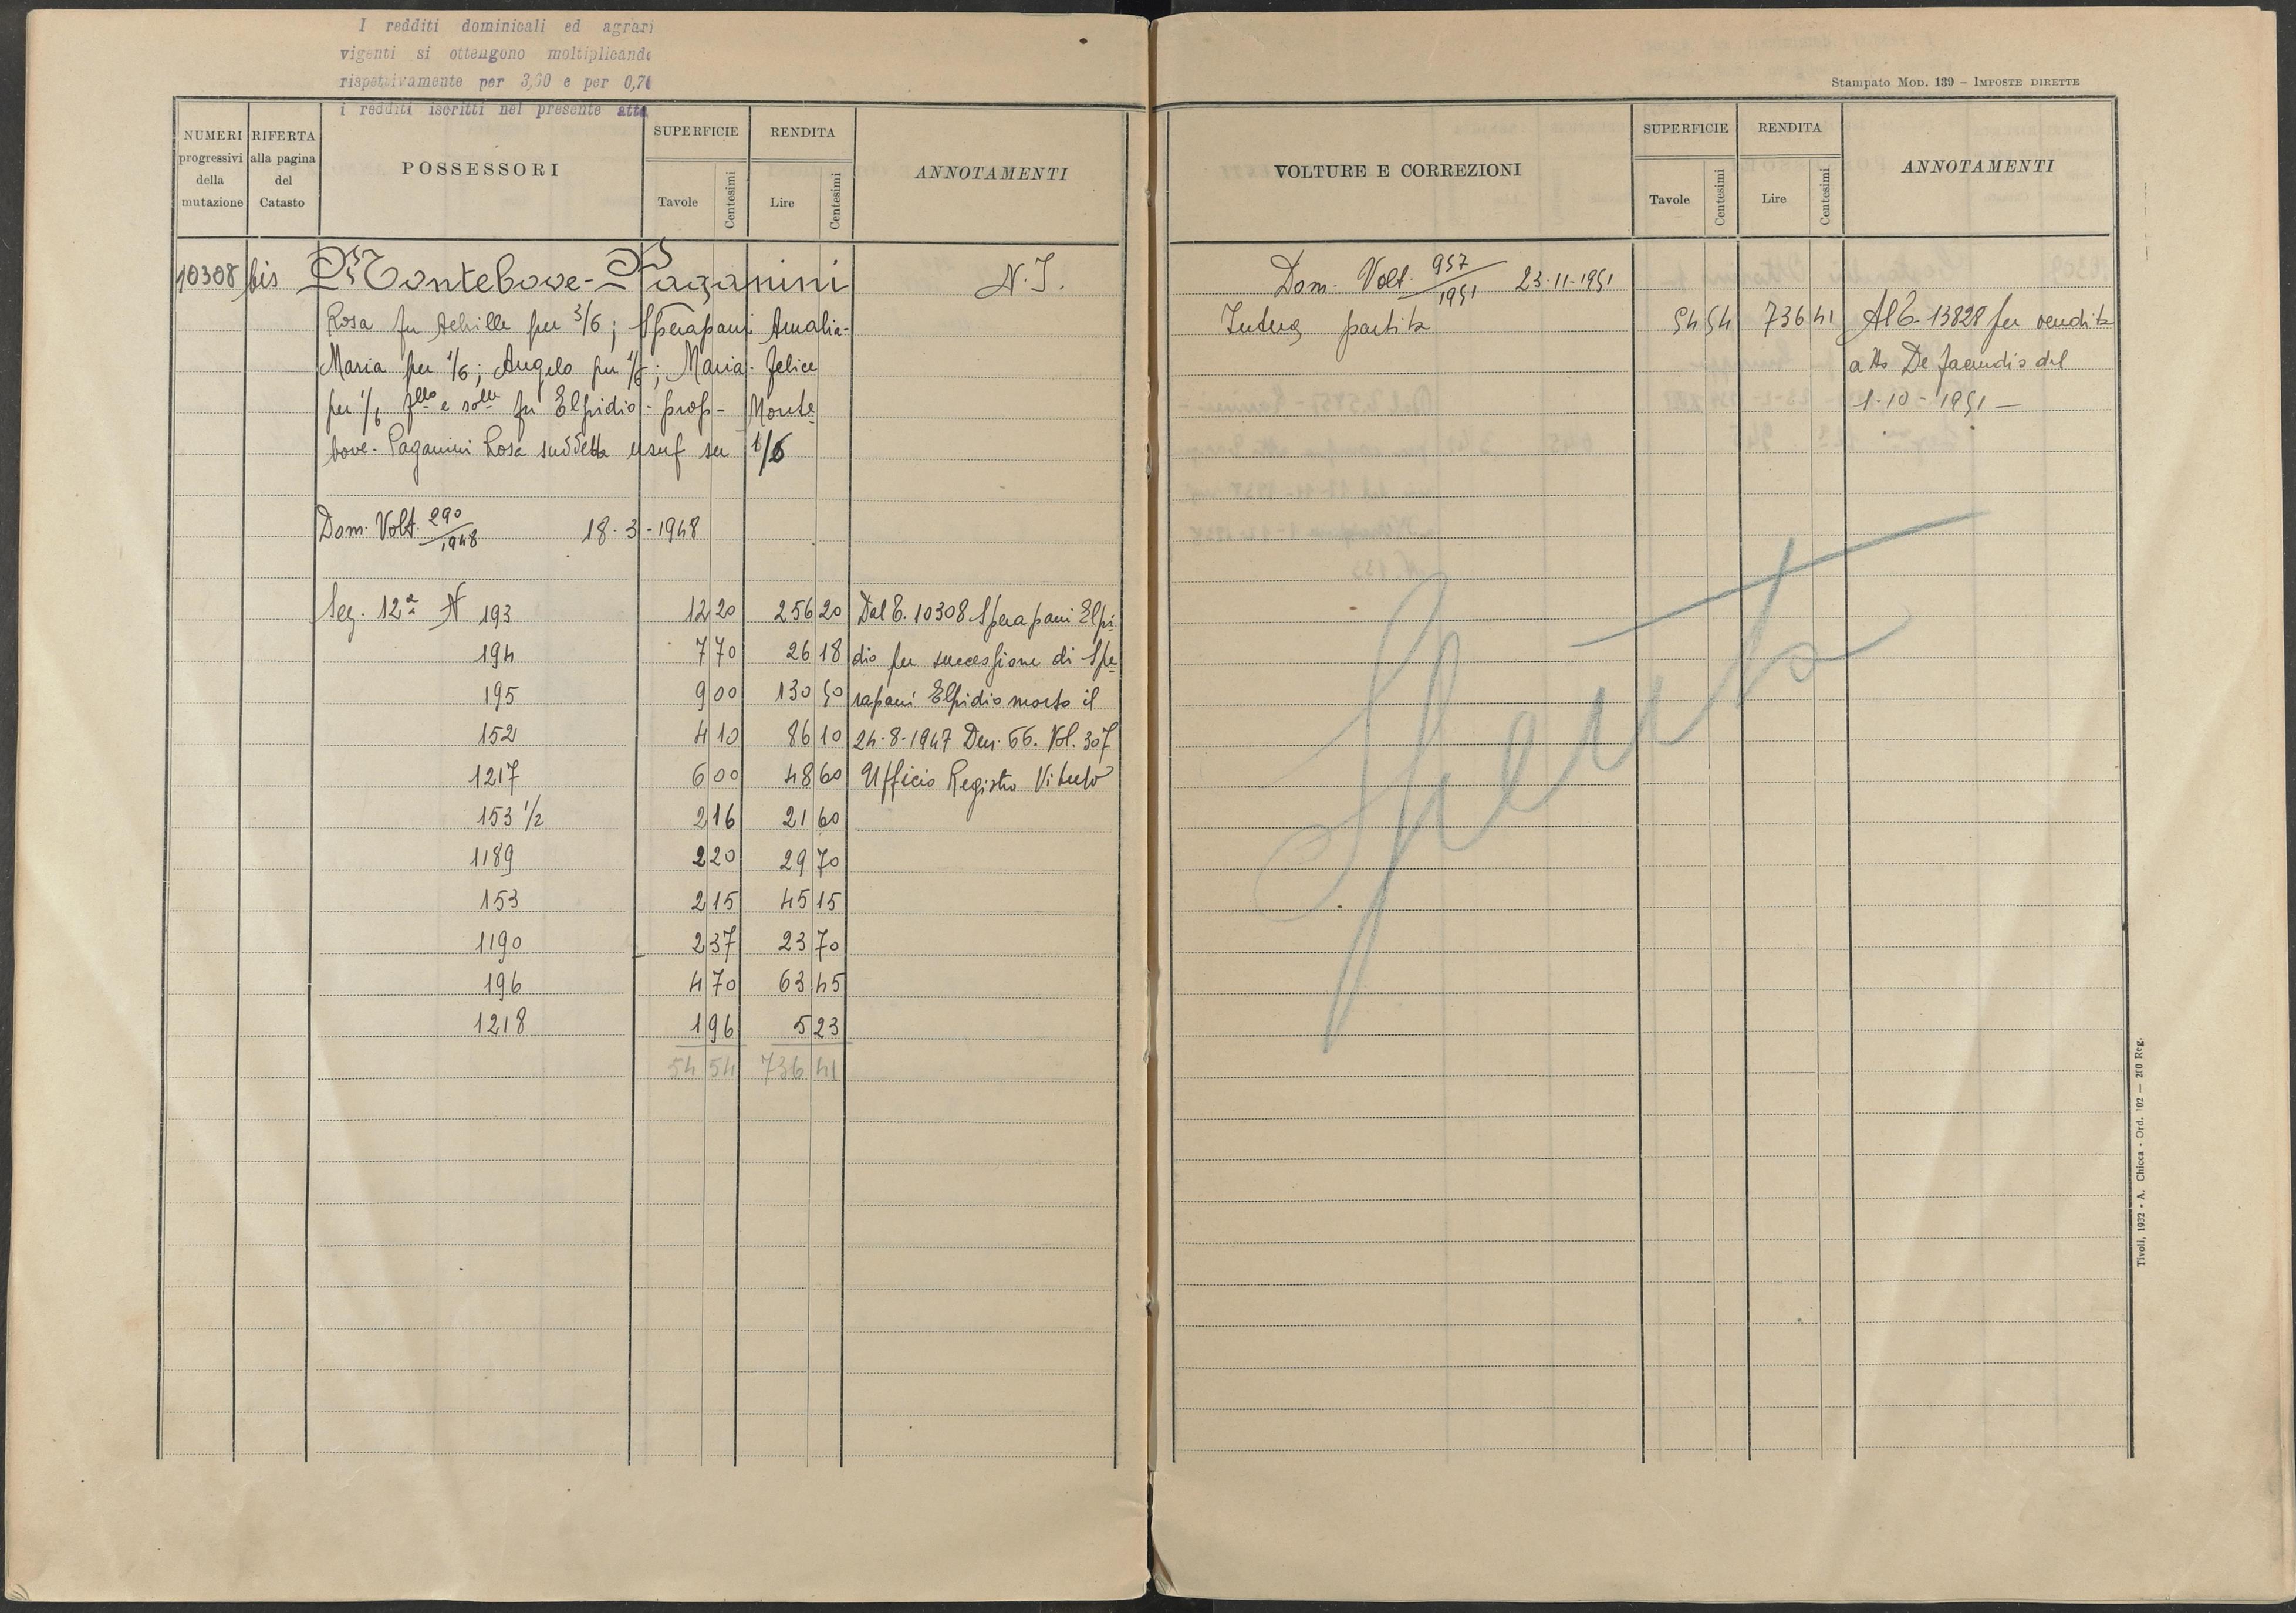 I redditi dominicali ed agrari
vigenti si ottengono moltiplicando
rispettivamente per 3,60 e per 0,70
i redditi iscritti nel presente atto
NUMERI progressivi della mutazione
RIFERTA alla pagina del Catasto
POSSESSORI
SUPERFICIE
Tavole Centesimi
RENDITA
Lire Centesimi
ANNOTAMENTI
10308 bis Montebove-Paganini N. I.
Rosa fu Achille per 3/6; Sperapani Amalia-
Maria per 1/6; Angelo per 1/6; Maria-Felice
per 1/6 flli e solle fu Elpidio-prop- Monte
bove-Paganini Rosa suddetta usuf su 1/6
Dom. Volt. 290/1948 18-3-1948
Sez. 12ª N 193 12 20 256 20 Dal C. 10308 Sperapani Elpi
194 7 70 26 18 dio per successione di Spe
195 9 00 130 50 rapani Elpidio morto il
152 4 10 86 10 24-8-1947 Den. 66. Vol. 307
1217 6 00 48 60 Ufficio Registro
153 1/2 2 16 21 60
1189 2 20 29 70
153 2 15 45 15
1190 2 37 23 70
196 4 70 63 45
1218 1 96 5 23
54 54 736 41
Stampato MOD. 139 – IMPOSTE DIRETTE
VOLTURE E CORREZIONI
SUPERFICIE
Tavole Centesimi
RENDITA
Lire Centesimi
ANNOTAMENTI
Dom. Volt. 957/1951 23-11-1951
Intera partita 54 54 736 41 Al C. 13828 per vendita
atto De Facendis del
1-10-1951 —
Spenta
Tivoli, 1932 - A. Chicca - Ord. 102 — 200 Reg.